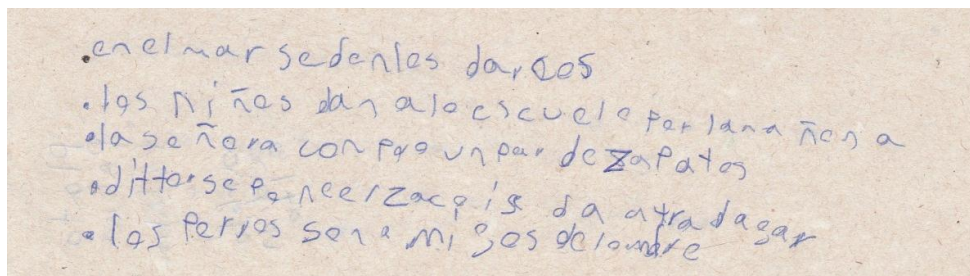 .enel mar sedenles darcos
.los niñas dan alaescuela perlana ñena
.la señora conpro unpar de zapatos
.dittorsepo neerzacois da atradagar
.los perros sona migos delomdre